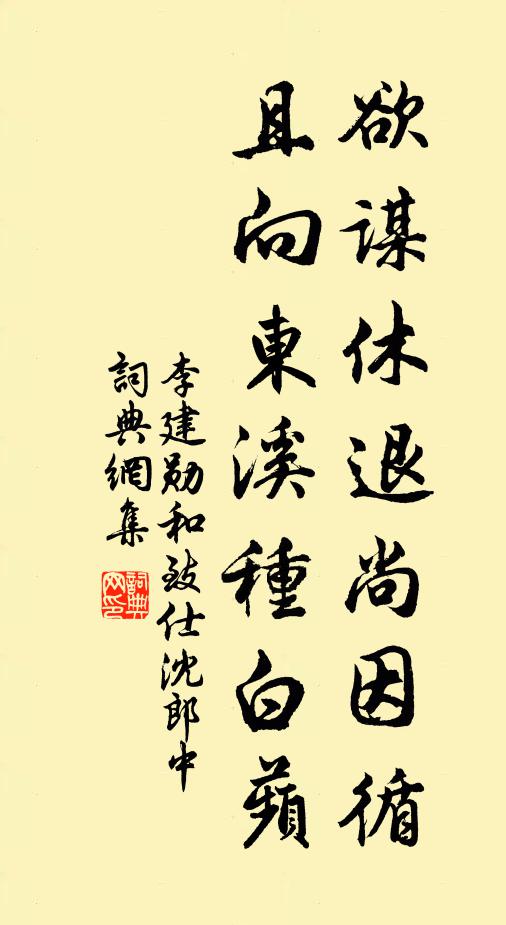 欲谋休退尚因循
且向東溪種白蘋
李建勛和致仕沈郎中
詞典網集
詞典网印